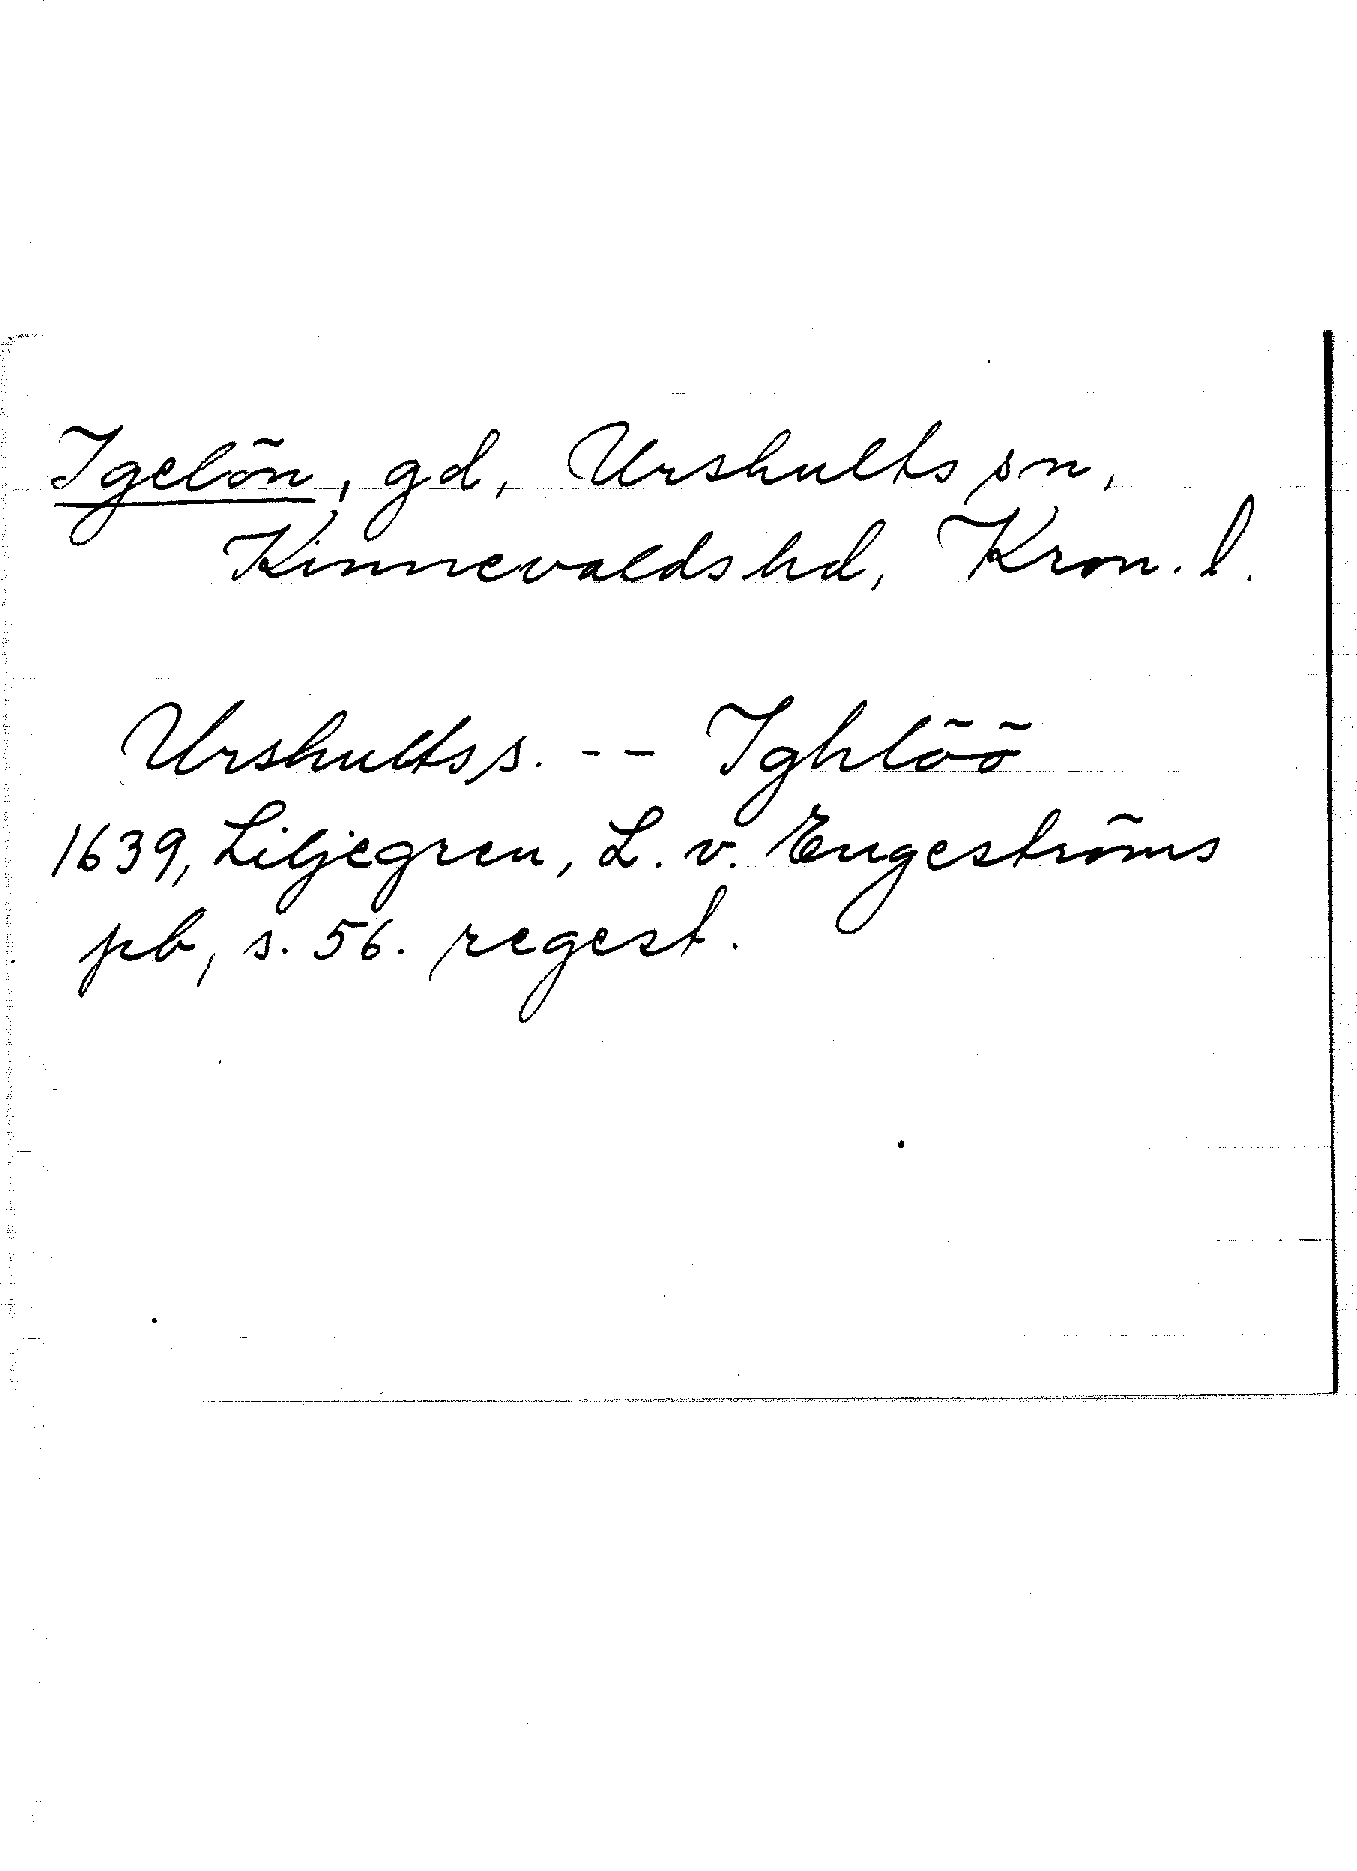 Igelön, gd, Urshults sn,
Kinnevalds hd, Kron. l.
Urshults s. -- Ighlöö
1639, Liljegren, L. v. Engeströms
pb, s. 56. regest.